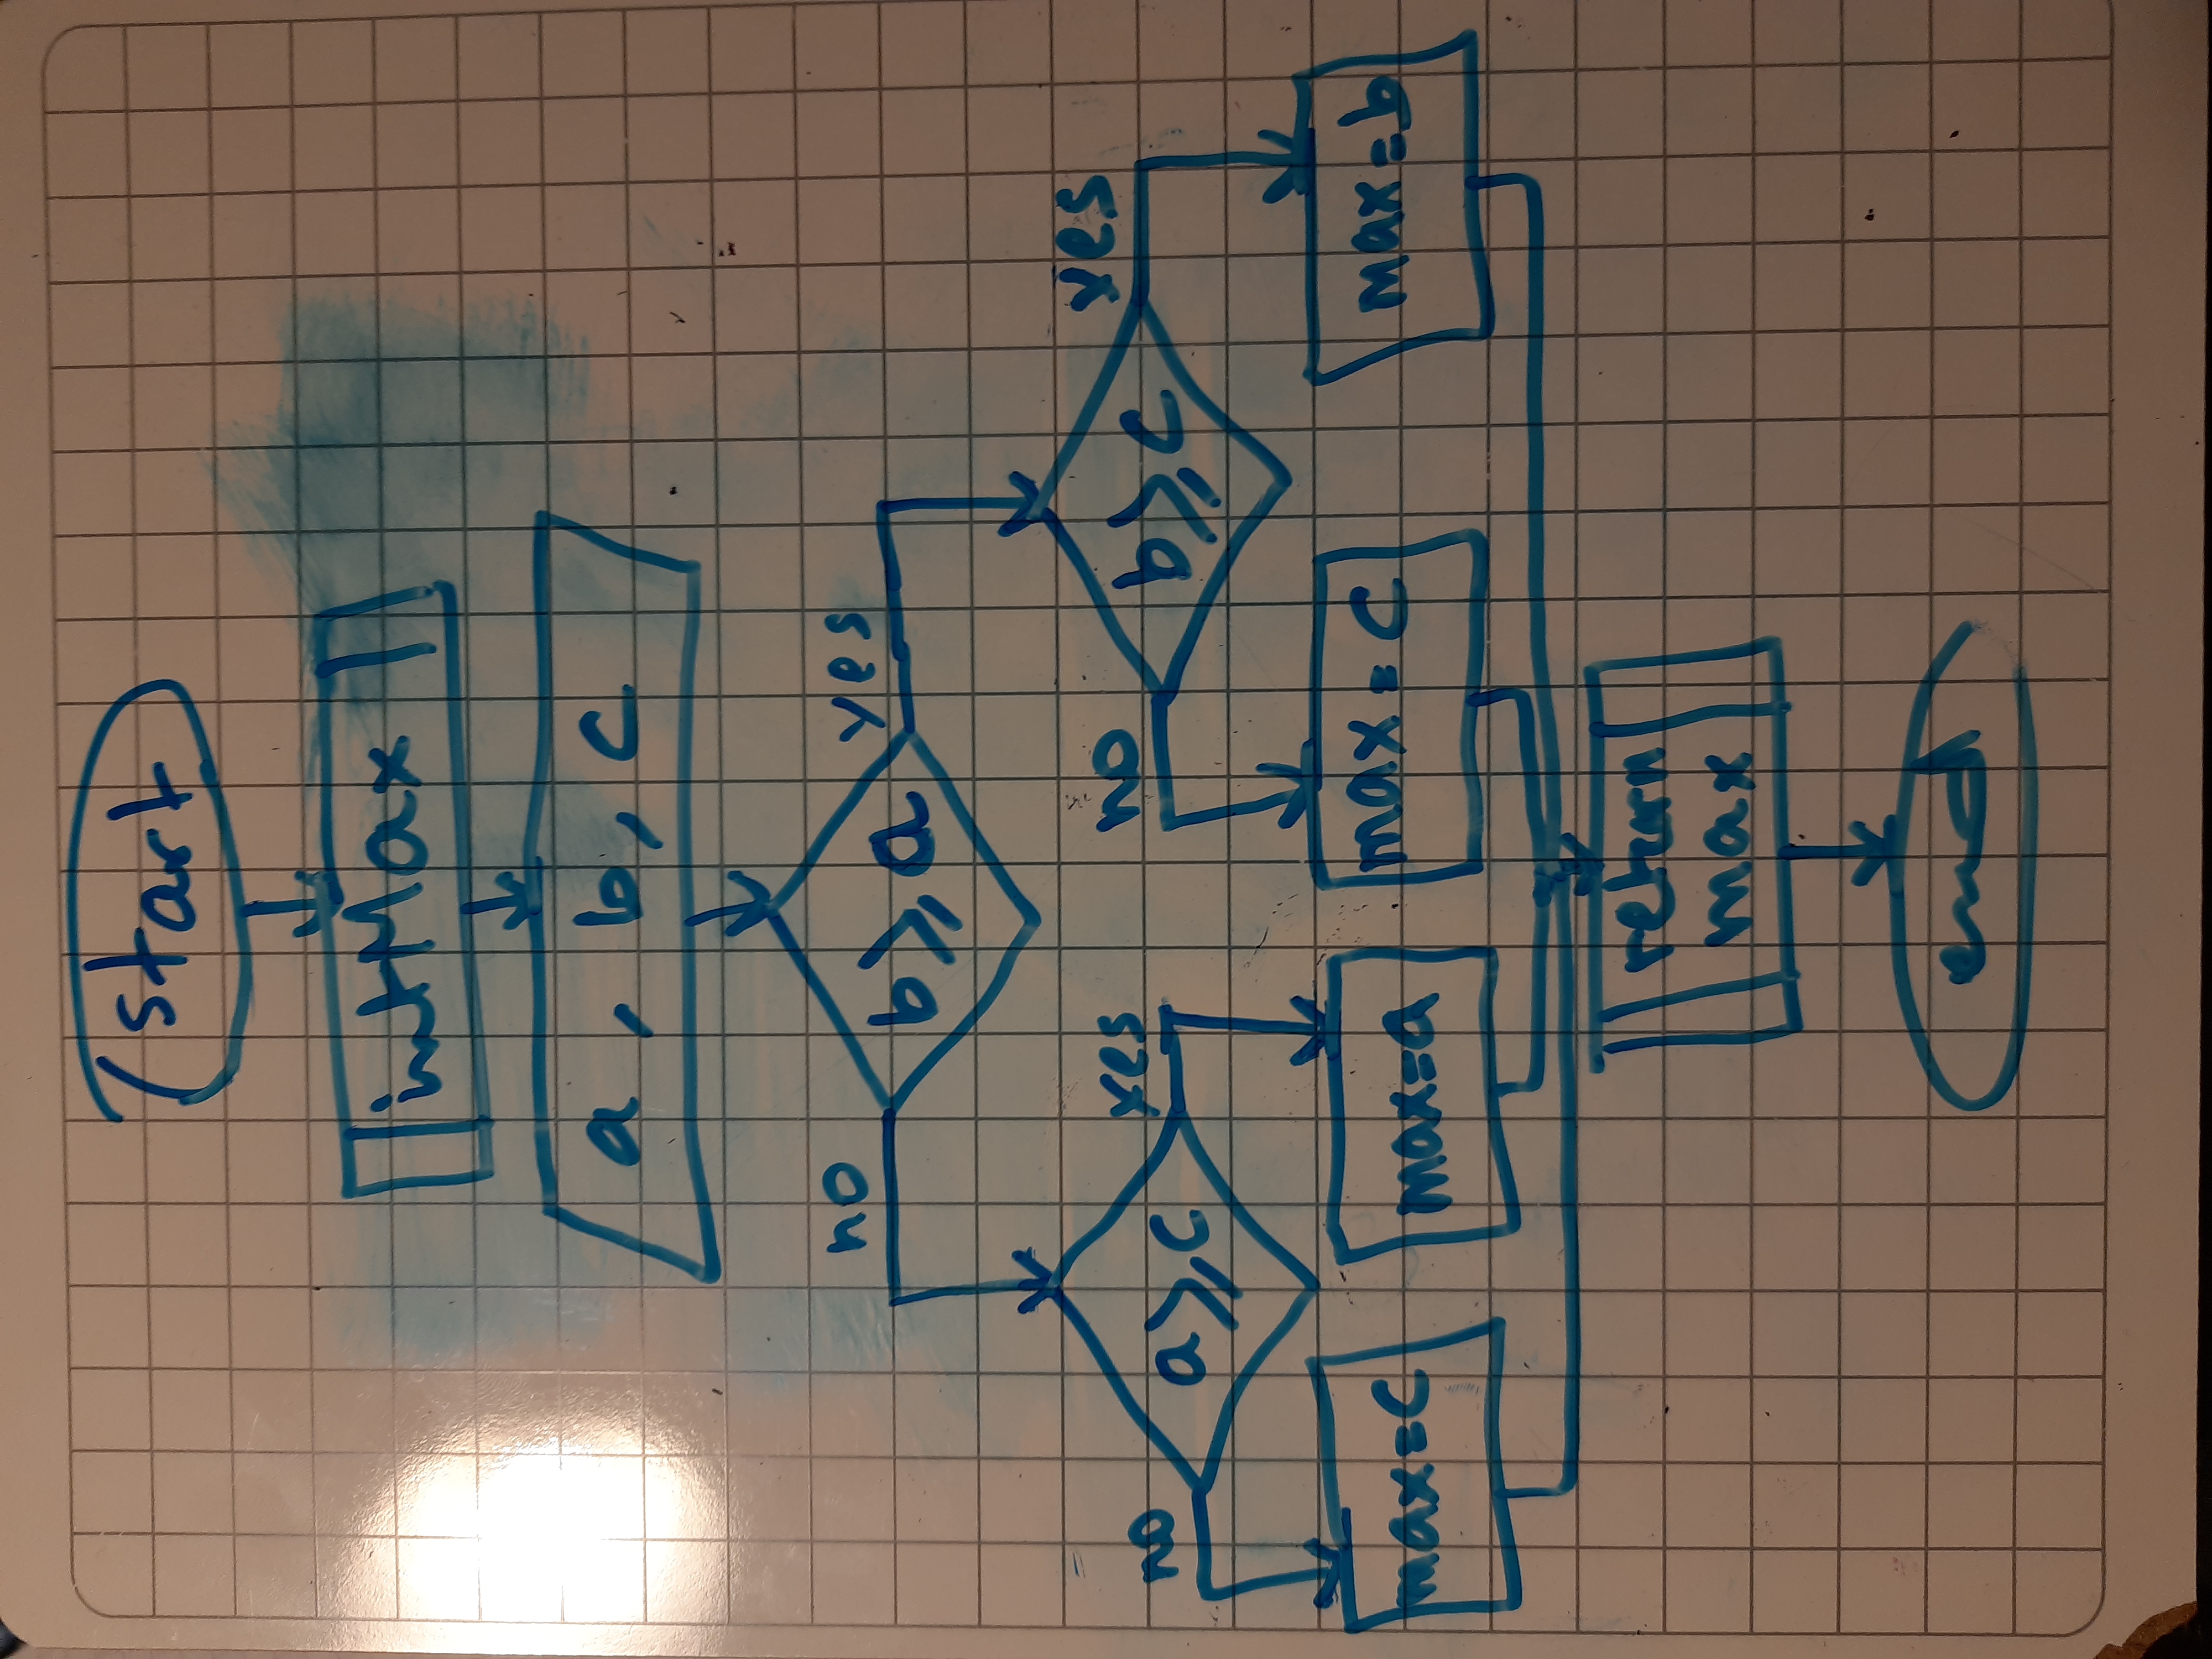 start
intMax
a , b, c
b⩾a
no
yes
a⩾c
no
yes
b⩾c
no
yes
max=c
max=a
max=c
max=b
return
max
end